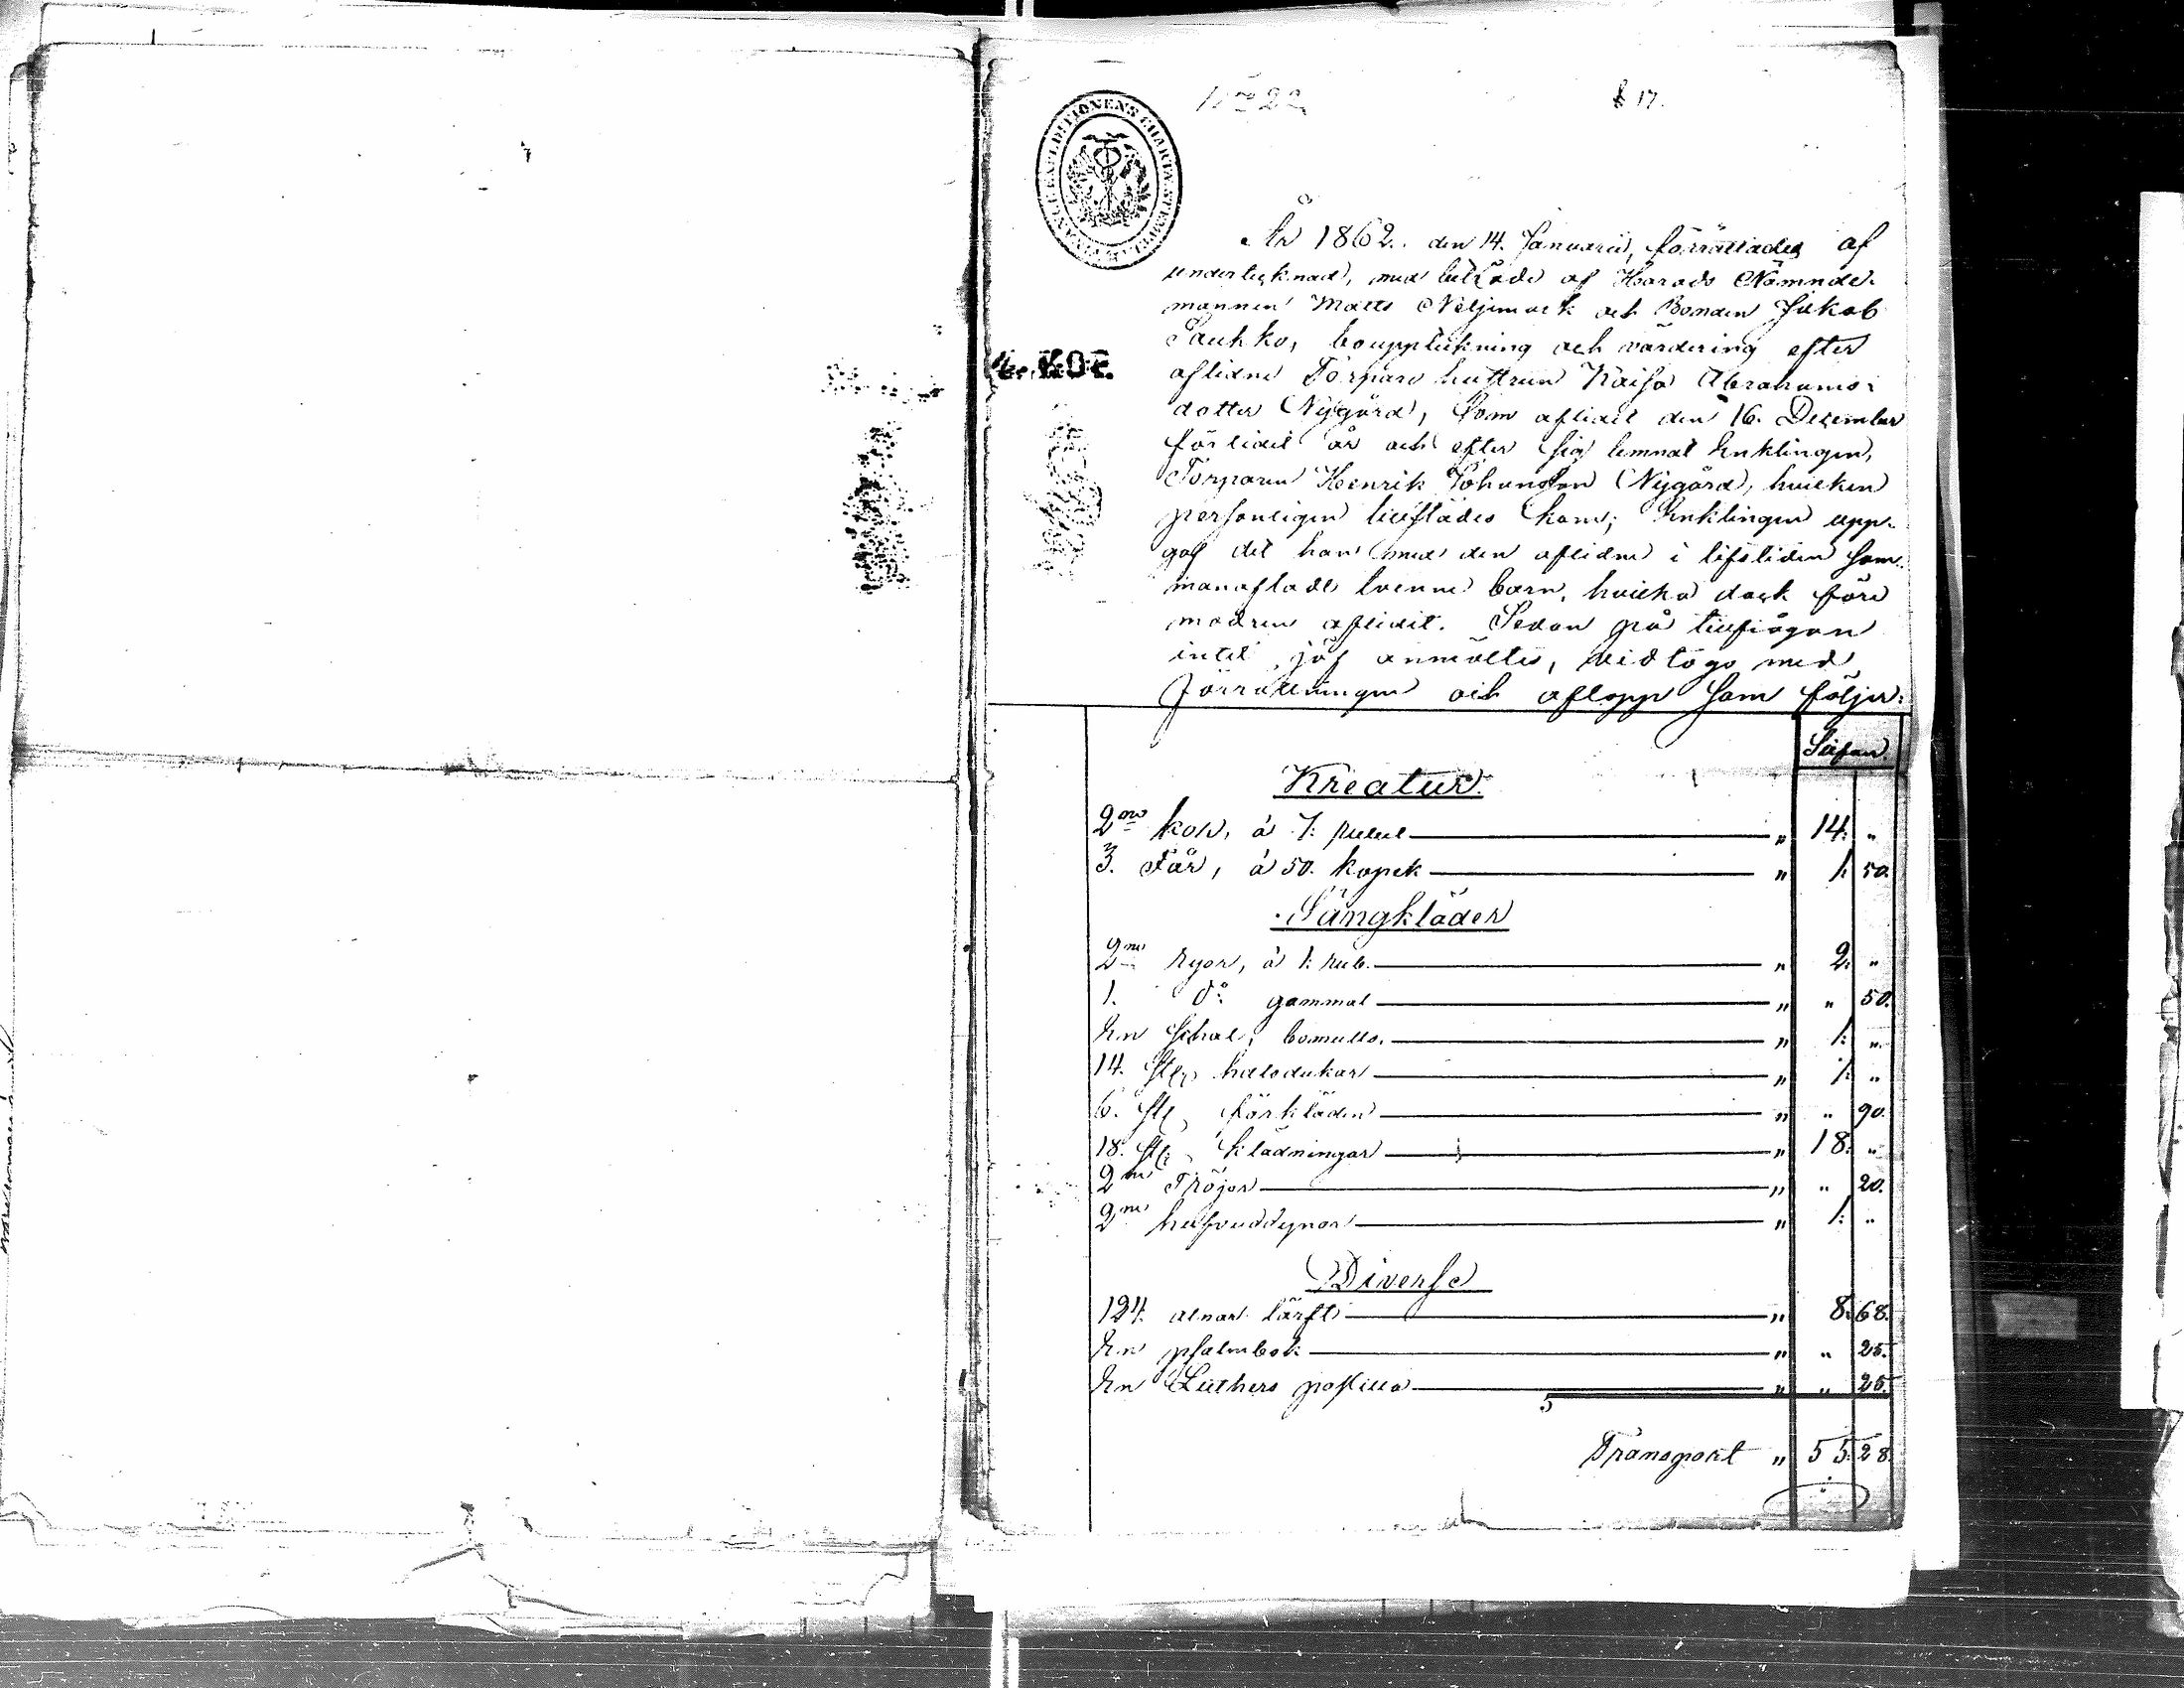 N:o 22
§ 17.
År 1862. den 14. Januarii, förrättades af
undertecknad, med biträde af Härads Nämnde-
mannen Matts Neljimark och Bonden Jakob
Sauhko, bouppteckning och värdering efter
aflidne Torpare hustrun Kaisa Abrahams-
dotter Nygård, som aflidit den 16. December
förlidit år och efter sig lemnat Enklingen,
Torparen Henrik Johansson Nygård, hvilken
personligen tillstädes kom; Enklingen upp-
gaf det han med den aflidne i lifstiden sam-
manaflade tvenne barn, hvilka dock före
modren aflidit. Sedan på tillfrågan
intet jäf anmältes, vidtogs med
förrättningen och aflopp som följer:
Silfver.
Kreatur.
2:ne kor, à 7: rubel " 14: "
3. Får, à 50. kopek " 1: 50.
Sängkläder
2:ne ryor, à 1: rub. " 2: "
1. d:o gammal " " 50.
En schal, bomulls. " 1: "
14. st. halsdukar " 1: "
6. st. förkläden " " 90.
18. st. klädningar " 18: "
2:ne Tröjor " " 20.
2:ne hufvuddynor " 1: "
Diverse
124. alnar lärft " 8: 68.
En psalmbok " " 25.
En Luthers postilla " " 25.
Transport " 55: 28.